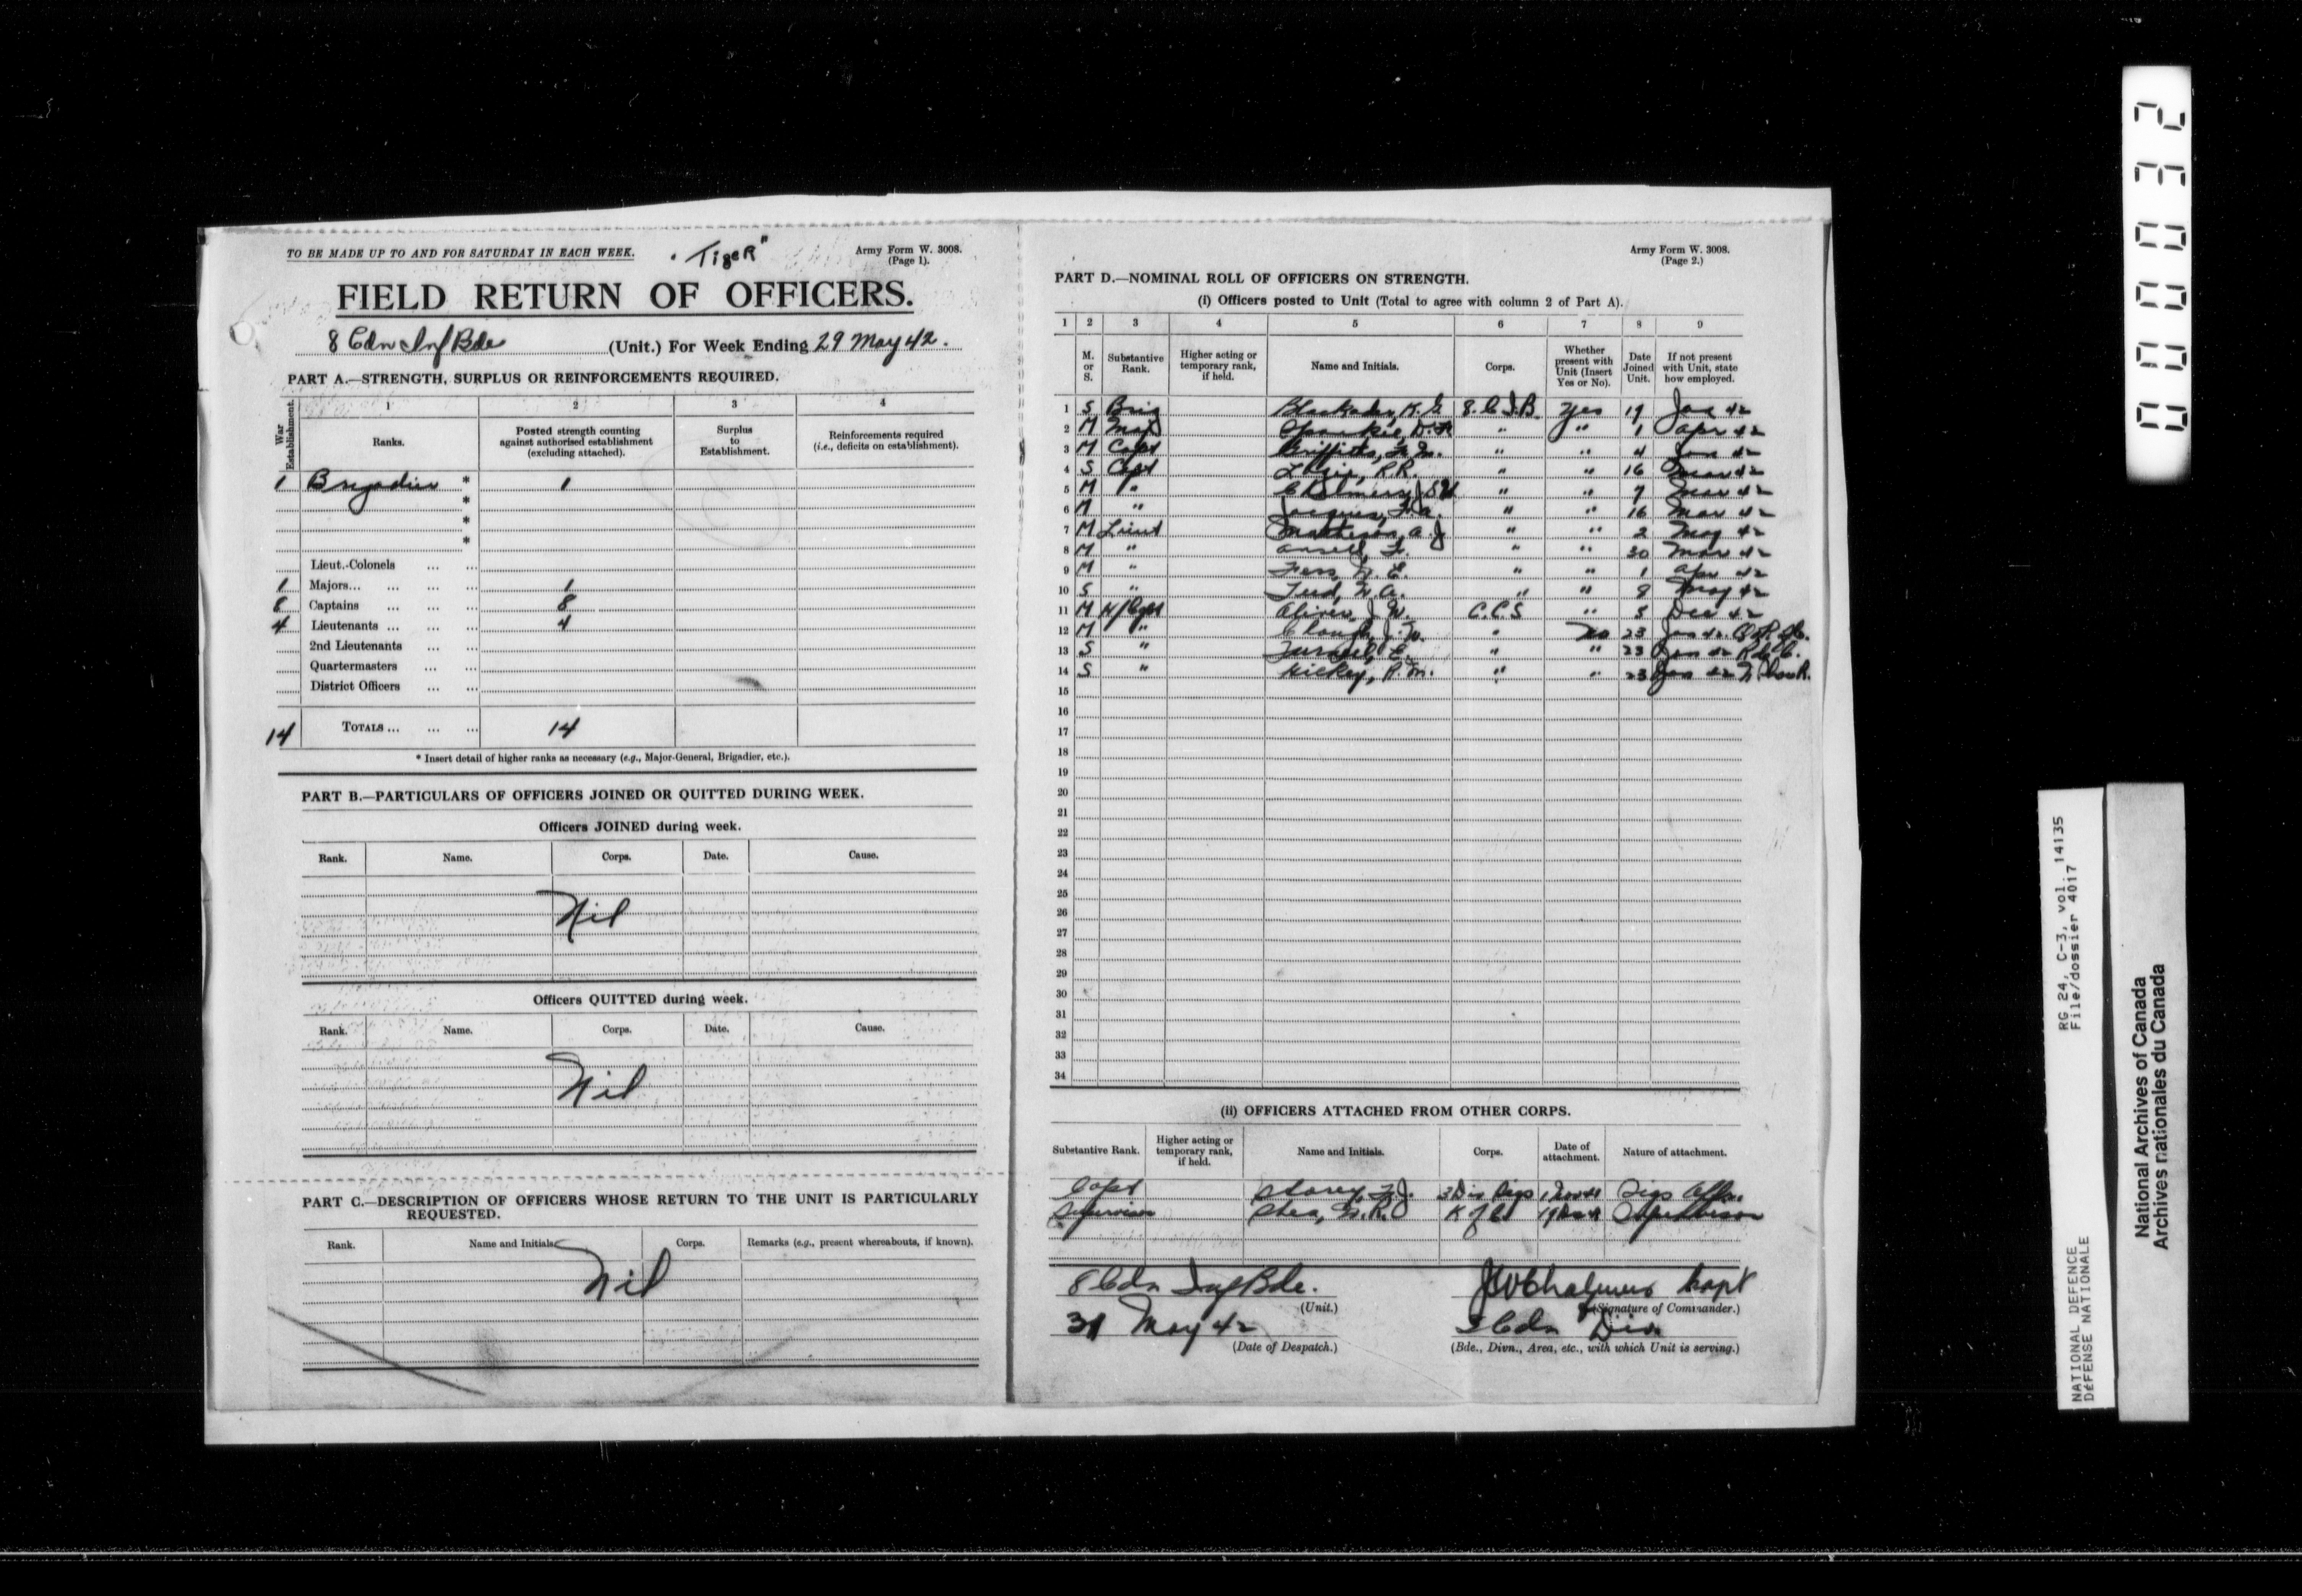 TO BE MADE UP TO AND FOR SATURDAY IN EACH WEEK.
"TIGER"
Army Form W. 3008.
(Page 1).
FIELD RETURN OF OFFICERS.
8 Cdn Inf Bde (Unit.) For Week Ending 29 May 42.
PART A.—STRENGTH, SURPLUS OR REINFORCEMENTS REQUIRED.
War Establishment.
1 2 3 4
Ranks.
Posted strength counting against authorised establishment (excluding attached).
Surplus to Establishment.
Reinforcements required (i.e., deficits on establishment).
1 Brigadier * 1
*
*
*
Lieut.-Colonels ... ...
1 Majors... ... ... ... 1
8 Captains ... ... ... 8
4 Lieutenants ... ... ... 4
2nd Lieutenants ... ...
Quartermasters ... ...
District Officers ... ...
14 TOTALS ... ... ... 14
* Insert detail of higher ranks as necessary (e.g., Major-General, Brigadier, etc.).
PART B.—PARTICULARS OF OFFICERS JOINED OR QUITTED DURING WEEK.
Officers JOINED during week.
Rank. Name. Corps. Date. Cause.
Nil
Officers QUITTED during week.
Rank. Name. Corps. Date. Cause.
Nil
PART C.—DESCRIPTION OF OFFICERS WHOSE RETURN TO THE UNIT IS PARTICULARLY
REQUESTED.
Rank. Name and Initials. Corps. Remarks (e.g., present whereabouts, if known).
Nil
Army Form W. 3008.
(Page 2.)
PART D.—NOMINAL ROLL OF OFFICERS ON STRENGTH.
(i) Officers posted to Unit (Total to agree with column 2 of Part A).
1 2 3 4 5 6 7 8 9
M. or S.
Substantive Rank.
Higher acting or temporary rank, if held.
Name and Initials.
Corps.
Whether present with Unit (Insert Yes or No).
Date Joined Unit.
If not present with Unit, state how employed.
1 S Brig Blackader, K. G. 8.C.I.B. Yes 19 Jan 42
2 M Maj " " 1 Apr 42
3 M Capt Griffiths, " " 4 Jan 42
4 S Capt R.R. " " 16 Mar 42
5 M " Chalmers, J.W " " 7 Mar 42
6 M " Jacques, " " 16 Mar 42
7 M Lieut Matheson, A. J " " 2 May 42
8 M " " " 30 Mar 42
9 M " " " 1 Apr 42
10 S " " " 8 May 42
11 M H/Capt Oliver, J W. C.C.S " 5 Dec 42
12 M " Clough, " No 23 Jan 42
13 S " " " 23 Jan 42
14 S " Hickey, R. M. " " 23 Jan 42 N Shore R.
15
16
17
18
19
20
21
22
23
24
25
26
27
28
29
30
31
32
33
34
(ii) OFFICERS ATTACHED FROM OTHER CORPS.
Substantive Rank.
Higher acting or temporary rank, if held.
Name and Initials.
Corps.
Date of attachment.
Nature of attachment.
Capt Storey, 3 Div Sigs Sigs Offr.
Supervisor Shea, K of C Supervisor
8 Cdn Inf Bde.
(Unit.)
JWChalmers Capt
(Signature of Commander.)
31 May 42
(Date of Despatch.)
3 Cdn Div
(Bde., Divn., Area, etc., with which Unit is serving.)
00032
RG 24, C-3, vol. 14135
File/dossier 4017
NATIONAL DEFENCE
DÉFENSE NATIONALE
National Archives of Canada
Archives nationales du Canada